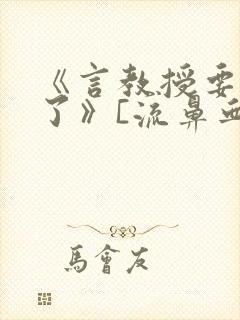 《言教授要
了》［流鼻血
馬會友